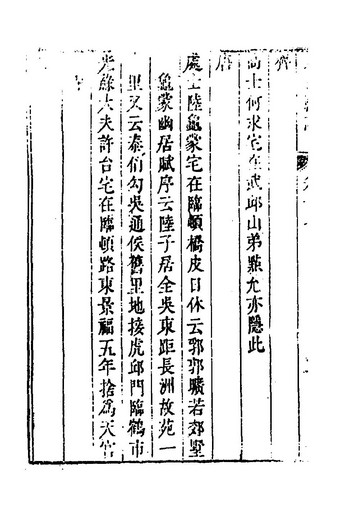 齊
高士何求宅在武邱山弟點尤亦隱此
唐
處士陸龜蒙宅在臨頓橋皮日休云郛郭曠若郊墅
龜蒙幽居賦序云陸子居全吳東距長洲故苑一
里又云泰伯勾吳通侯舊里地接虎邱門臨鶴市
光祿大夫許台宅在臨頓路東景福五年捨爲天宮